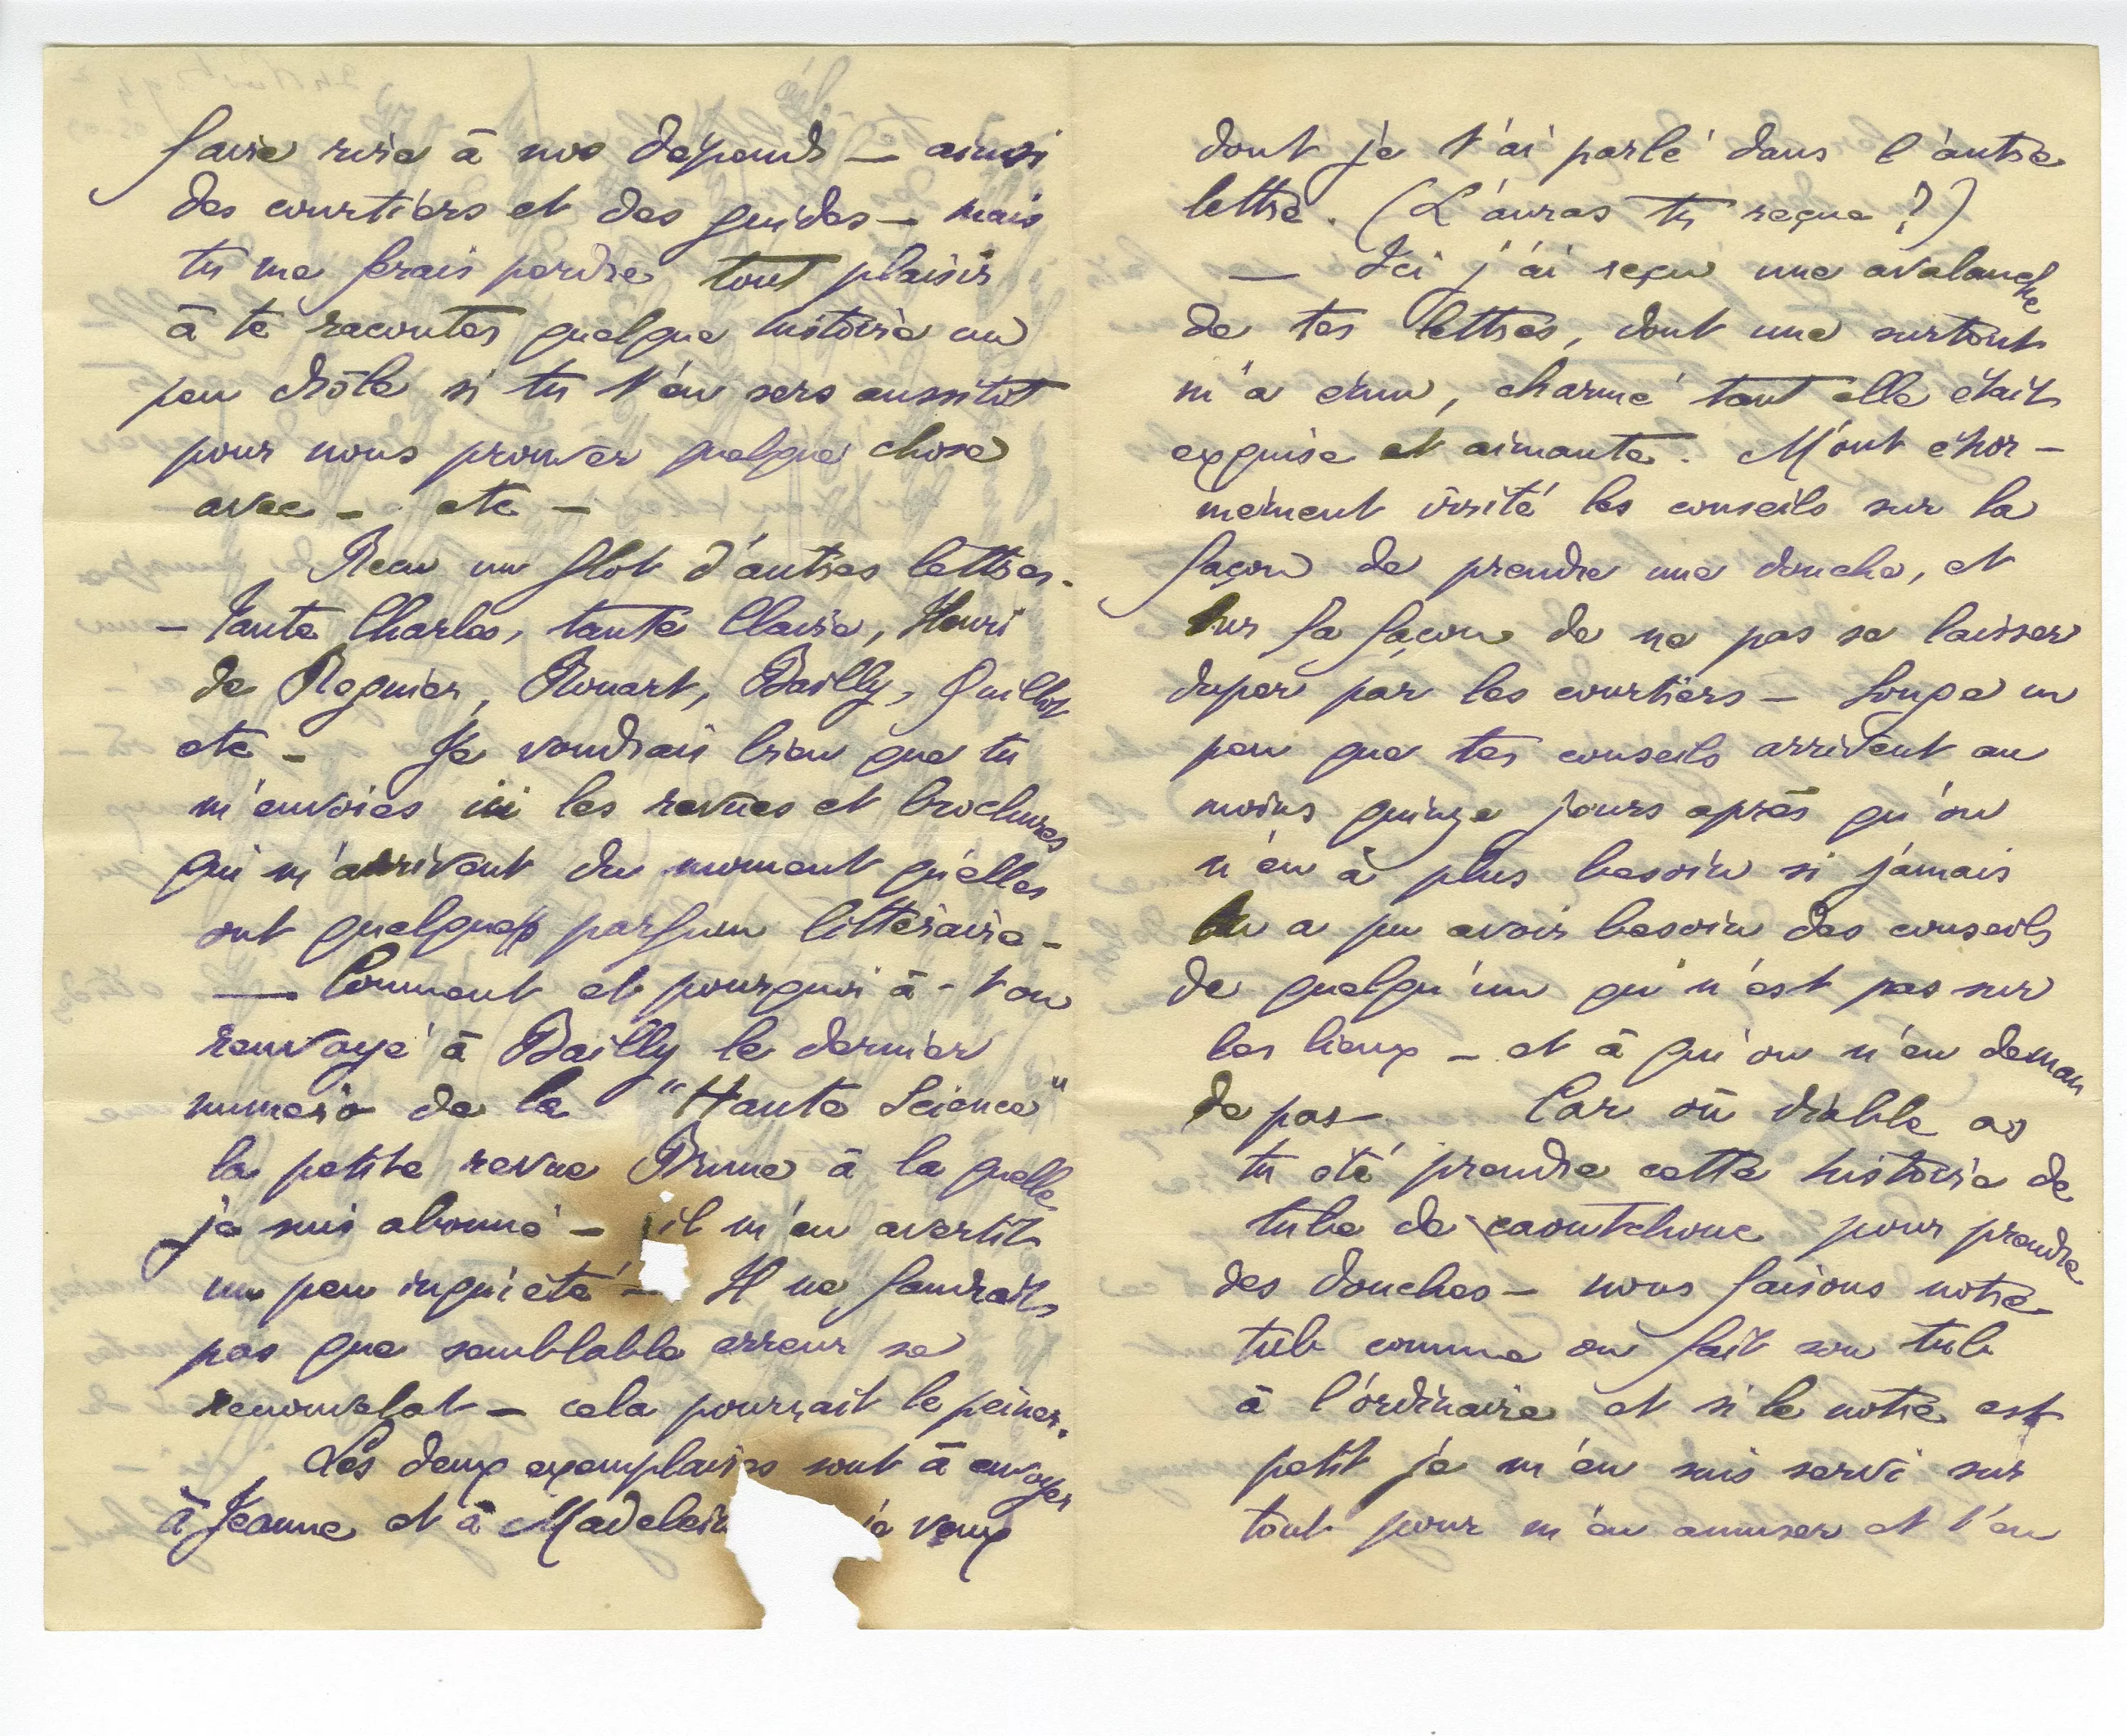 faire rire à nos dépends — ainsi
des courtiers et des guides — mais
tu me ferais perdre tout plaisir
à te raconter quelque histoire un
peu drôle si tu t'en sers aussitot
pour nous prouver quelque chose
avec — etc —
Reçu un flot d'autres lettres —
— Tante Charles, tante Claire, Henri
de Regnier, Rouart, Bailly, Quillot
etc — Je voudrais bien que tu
m'envoies ici les revues et brochures
qui m'arrivent du moment qu'elles
ont quelques parfum littéraire —
— Comment et pourquoi a-t on
renvoyé à Bailly le dernier
numero de la "Haute Science"
la petite revue Brune à la quelle
je suis abonné — il m'en avertit
un peu inquiété — Il ne faudrait
pas que semblable erreur se
renouvelat — cela pourrait le peiner.
Les deux exemplaires sont à envoyer
à Jeanne et à Madelein je veux
dont je t'ai parlé dans l'autre
lettre. (L'auras tu reçue ?)
— Ici j'ai reçu une avalanche
de tes lettres, dont une surtout
m'a ému, charmé tant elle était
exquise et aimante. M'ont énor-
mément irrité les conseils sur la
façon de prendre une douche, et
sur la façon de ne pas se laisser
duper par les courtiers — Songe un
peu que tes conseils arrivent au
moins quinze jours après qu'on
n'en a plus besoin si jamais
on a pu avoir besoin des conseils
de quelqu'un qui n'est pas sur
les lieux — et à qui on n'en deman
de pas — Car où diable as
tu été prendre cette histoire de
tube de caoutchouc pour prendre
des douches — nous faisons notre
tub comme on fait son tub
à l'ordinaire et si le notre est
petit je m'en suis servi sur
tout pour m'en amuser et t'en